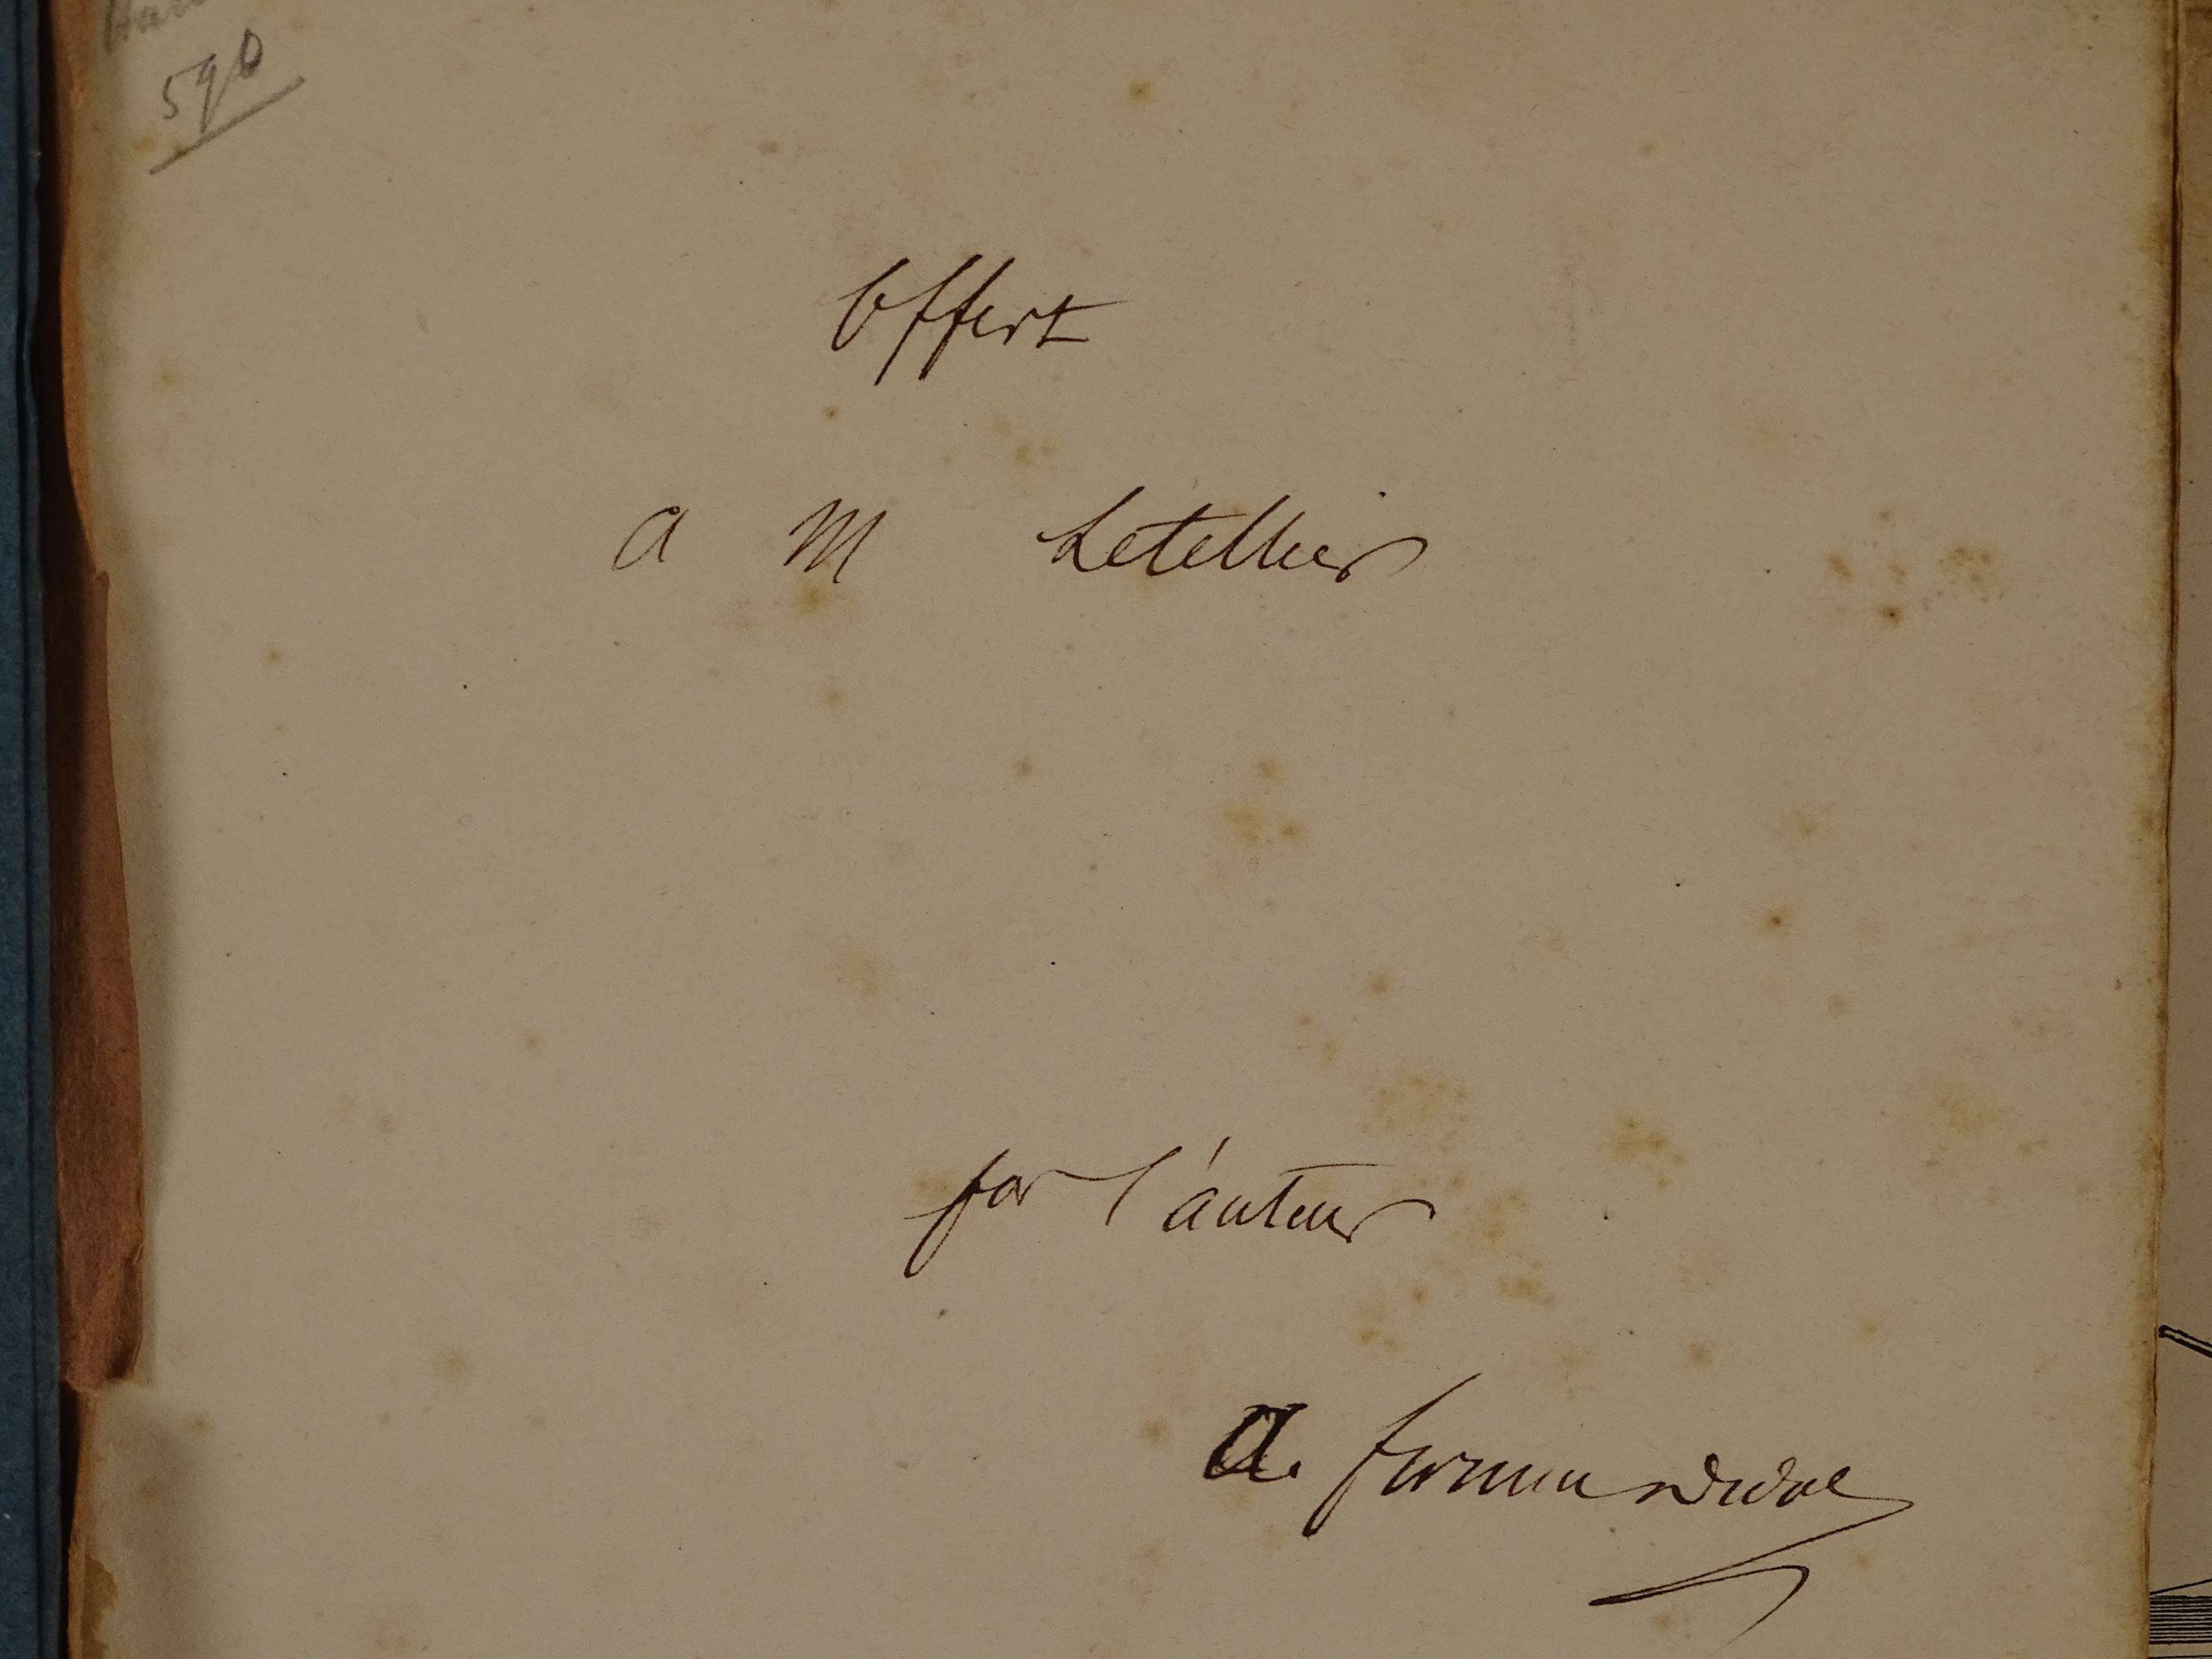 590
Offert
a M Letellier
par l'auteur
A. firmin Didot